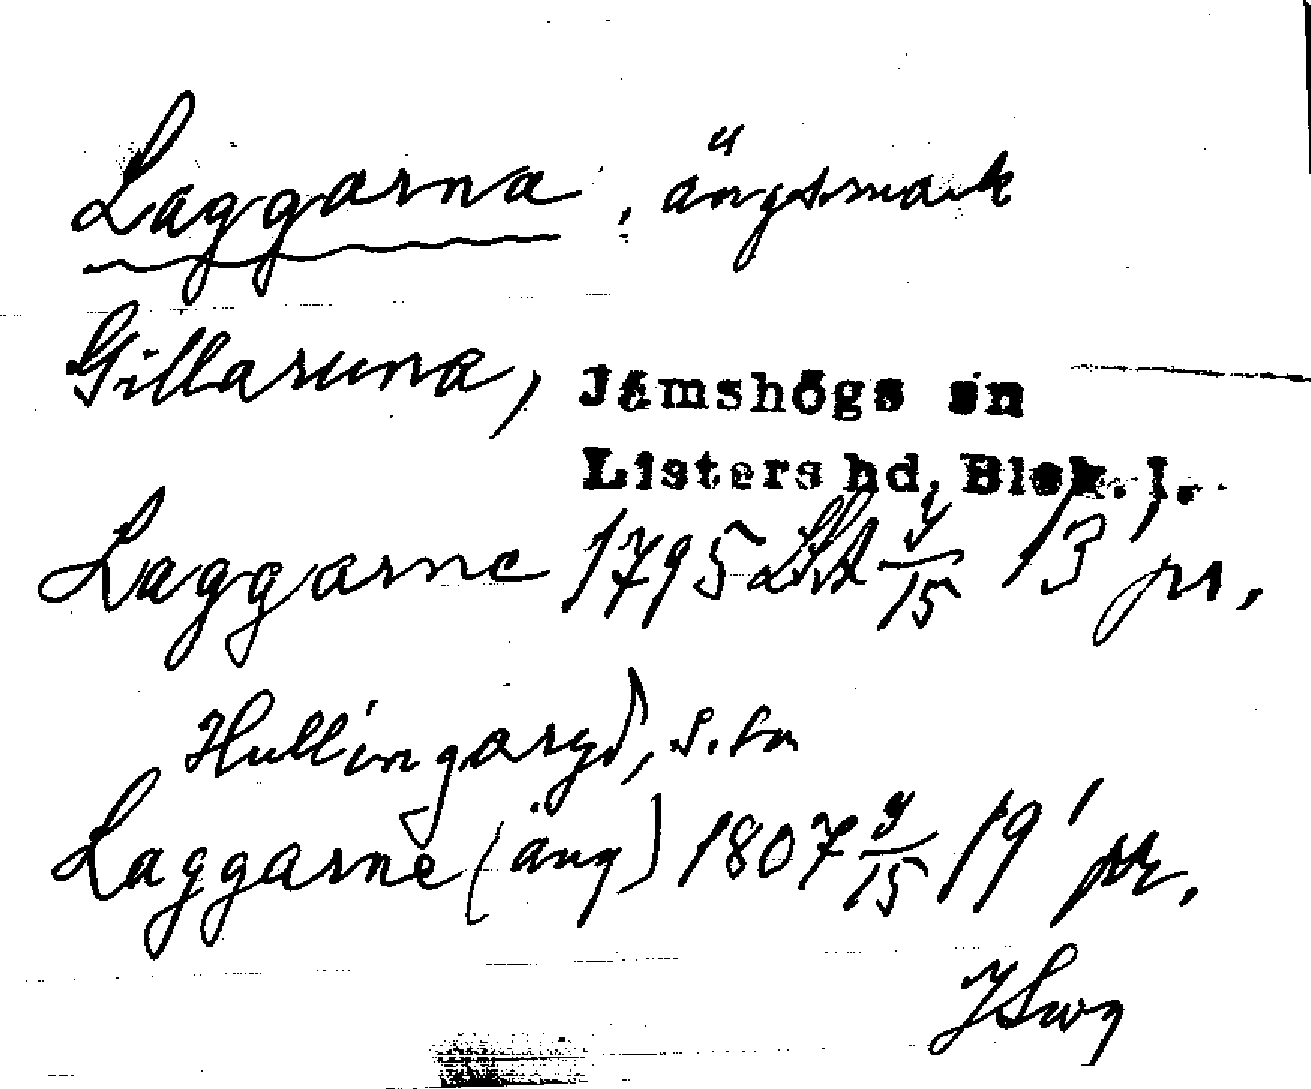 Laggarna, ängsmark
Gillaruna, Jämshögs sn
Listers hd, Blek. l.
Laggarne 1795 LSA y/15 13' pr.
Hullingaryd, s. sn
Laggarne (äng) 1807 y/15 19' pr.